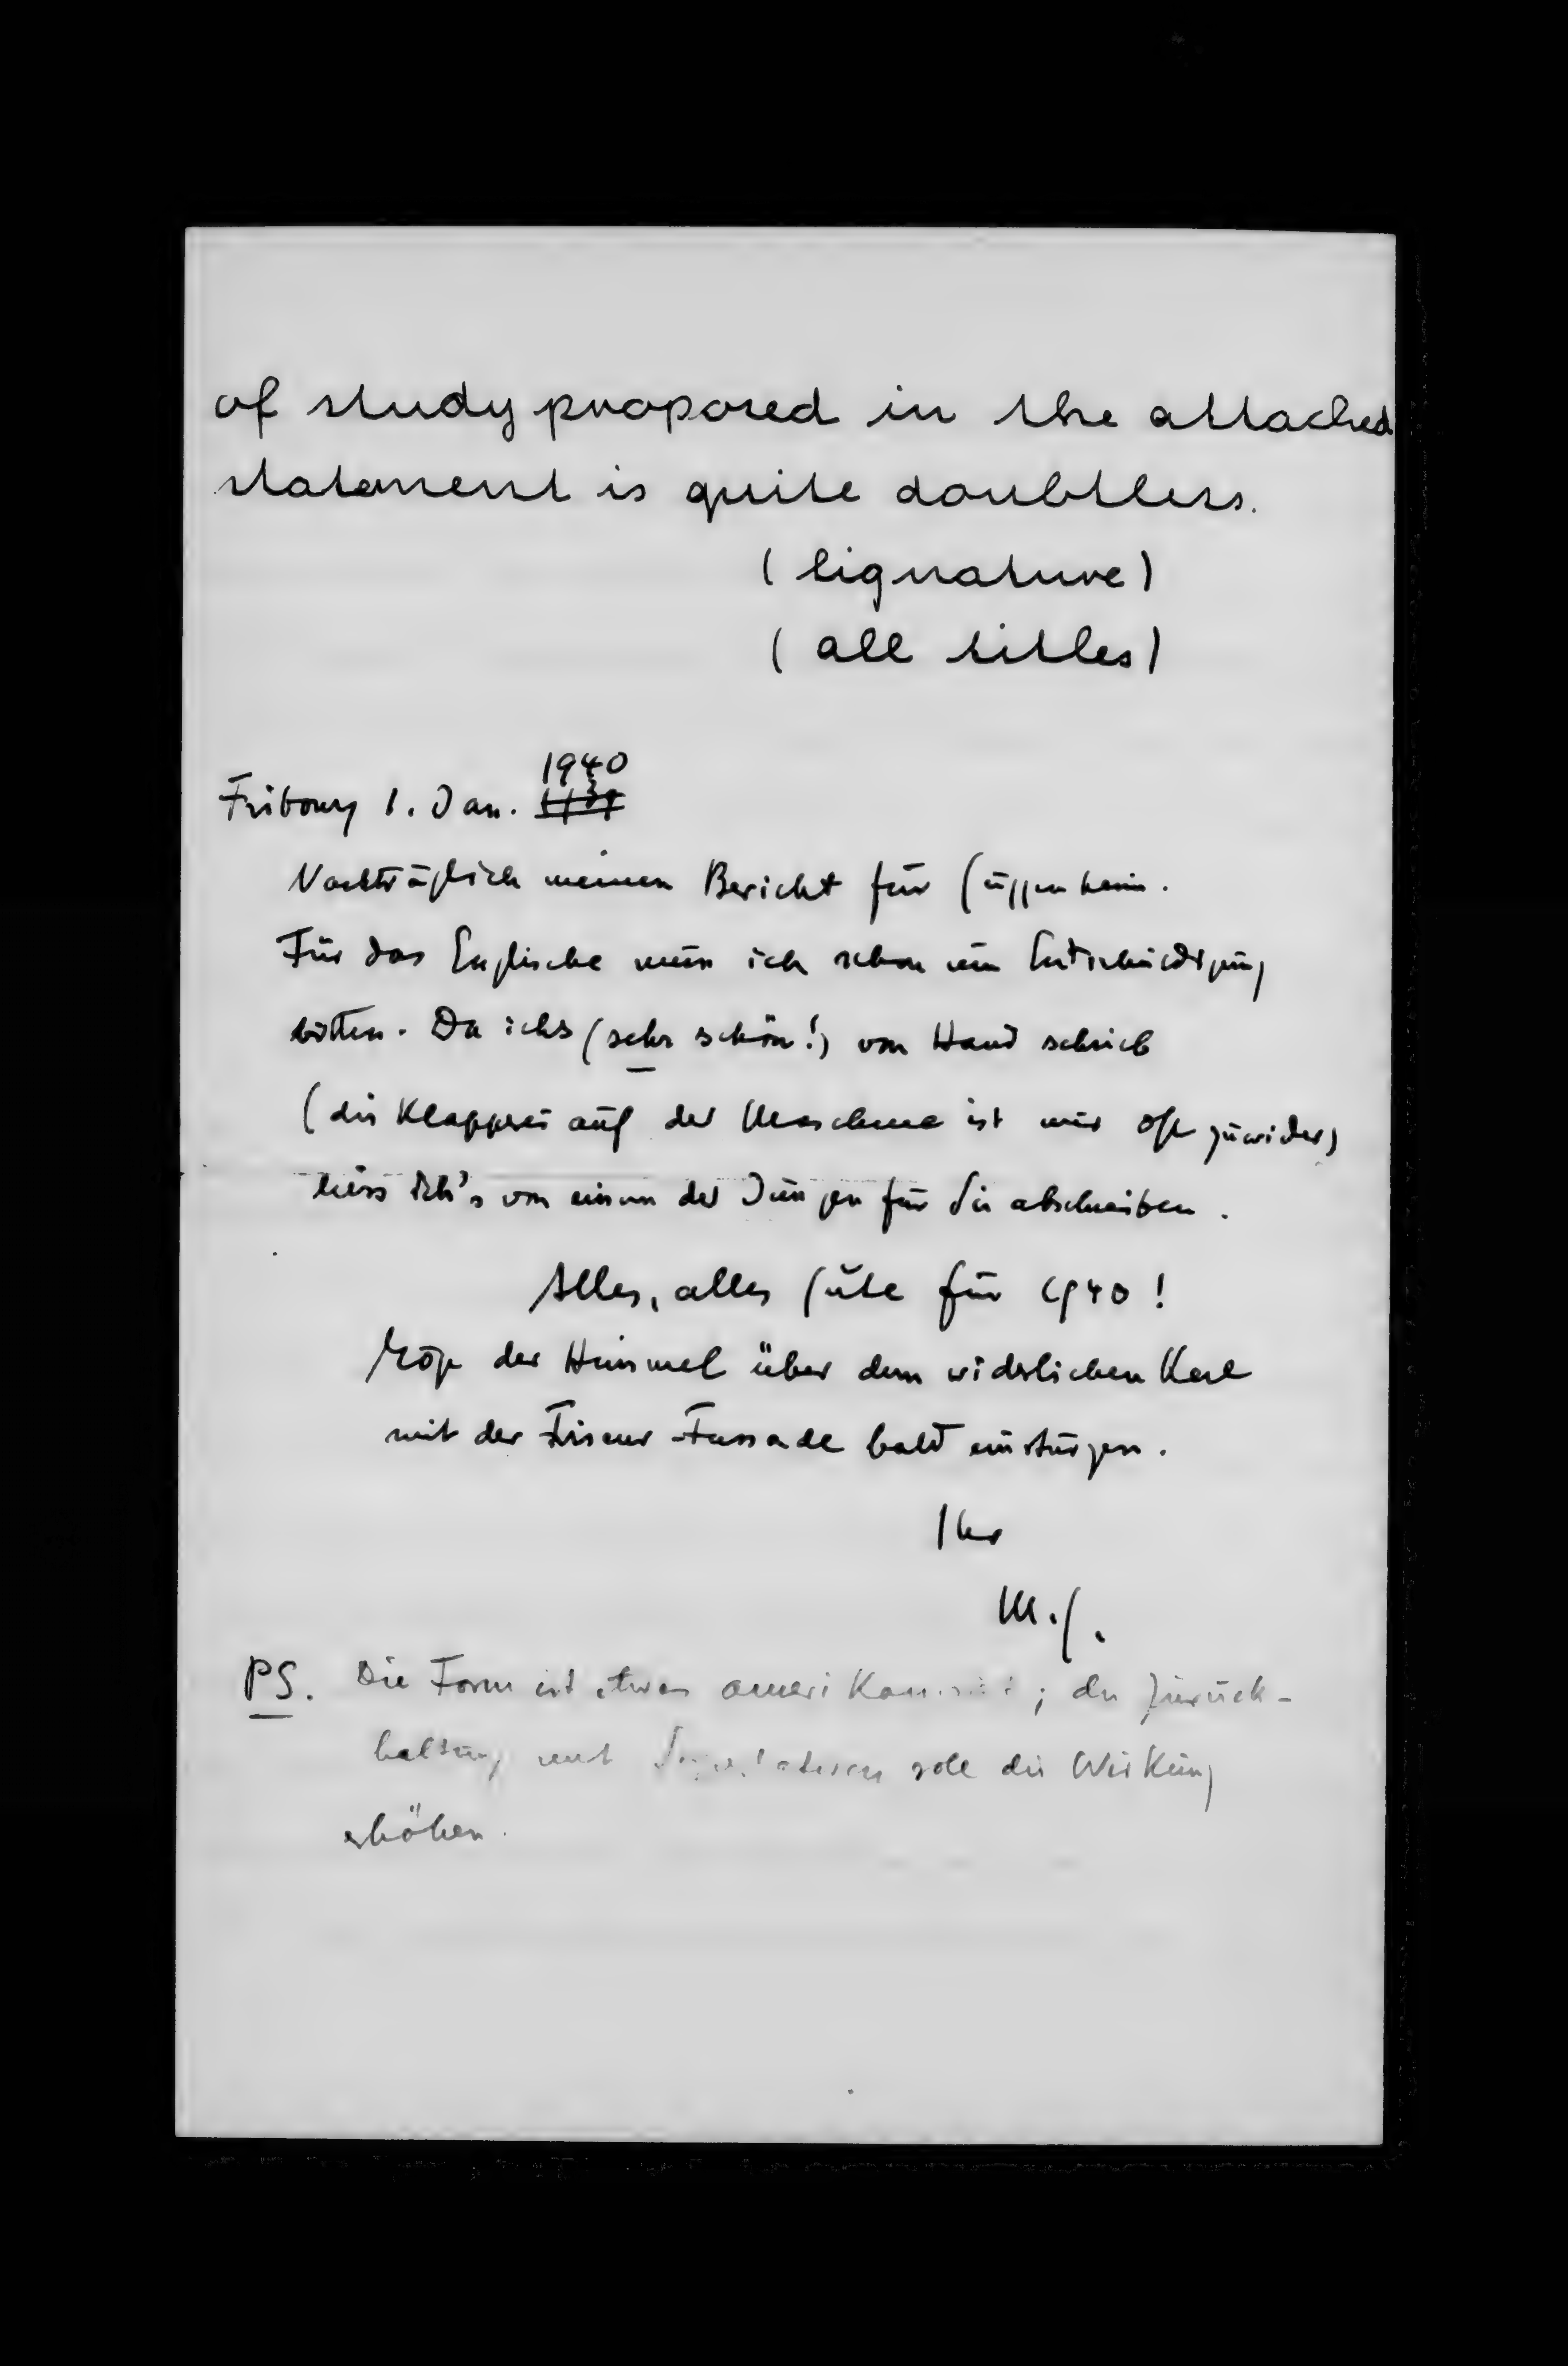 of study proposed in the attached
statement is quite doubtless.
(signature)
(all titles)
1940
Fribourg 1. Jan. 1939
Nachträglich meinen Bericht für Guggenheim.
Für das Englische muss ich schon um Entschuldigung
bitten. Da ichs (sehr schön!) von Hand schrieb
(die Klapperei auf der Maschine ist mir oft zuwider)
liess ich's von einem der Jungen für Sie abschreiben.
Alles, alles Gute für 1940!
Möge der Himmel über dem widerlichen Kerl
mit der Friseur-Fassade bald einstürzen.
Ihr
M.G.
PS. Die Form ist etwas amerikanisiert; die Zurück-
haltung mit Superlativen soll die Wirkung
erhöhen.